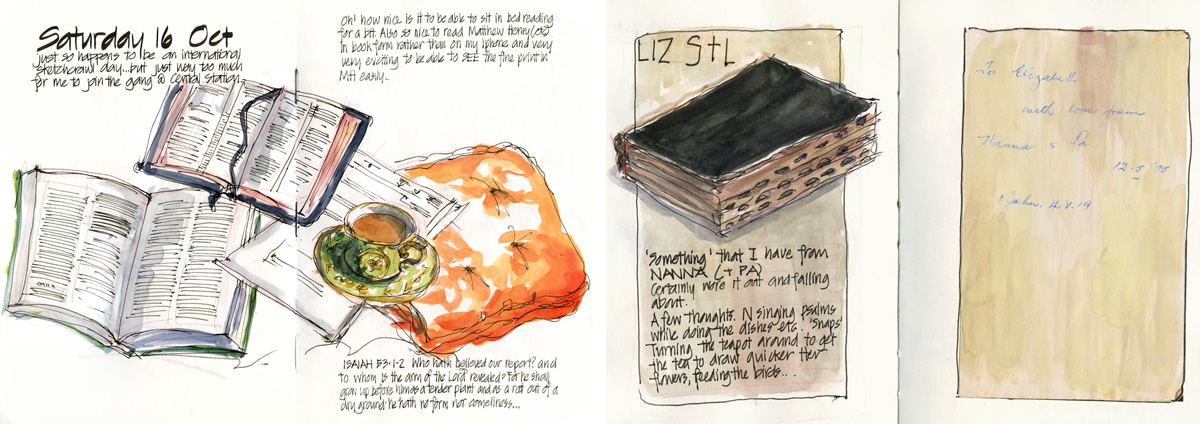 Saturday 16 Oct
just so happens to be an international
sketchcrawl day...but just way too much
for me to join the gang @ Central Station..
Oh! how nice is it to be able to sit in bed reading
for a bit. Also so nice to read Matthew Henry (etc)
in book form rather than on my iphone and very
very exciting to be able to SEE the fine print in
MH easily..
ISAIAH 53:1-2 Who hath believed our report? and
to whom is the arm of the Lord revealed? For he shall
grow up before him as a tender plant and as a root out of a
dry ground: he hath no form nor comeliness...
LIZ StL
'something' that I have from
NANNA (+ PA)
Certainly wore it out and falling
about.
A few thoughts. N singing psalms
while doing the dishes etc. 'snaps'
Turning the teapot around to get
the tea to draw quicker. Her
flowers, feeding the birds...
To Elizabeth
with love from
Nanna & Pa
12.5.'75
1 John. 4. V. 19